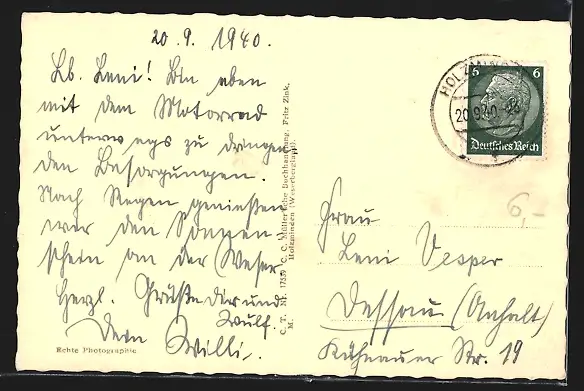 20.9.1940.
Lb. Leni! Bin eben
mit dem Motorrad
unterwegs zu dringen
den Besorgungen.
Nach Regen genießen
wir den Sonnen
schein an der Weser
Herzl. Grüße Dir und
Wulf.
Dein Willi.
Echte Photographie
C. T. Nr. 17539 C. C. Müller'sche Buchhandlung, Fritz Zink,
M. Holzminden (Weserbergland).
HOLZMINDEN
20.9.40
6 6
Deutsches Reich
6,-
Frau
Leni Vesper
Dessau (Anhalt)
Kühnauer Str. 19